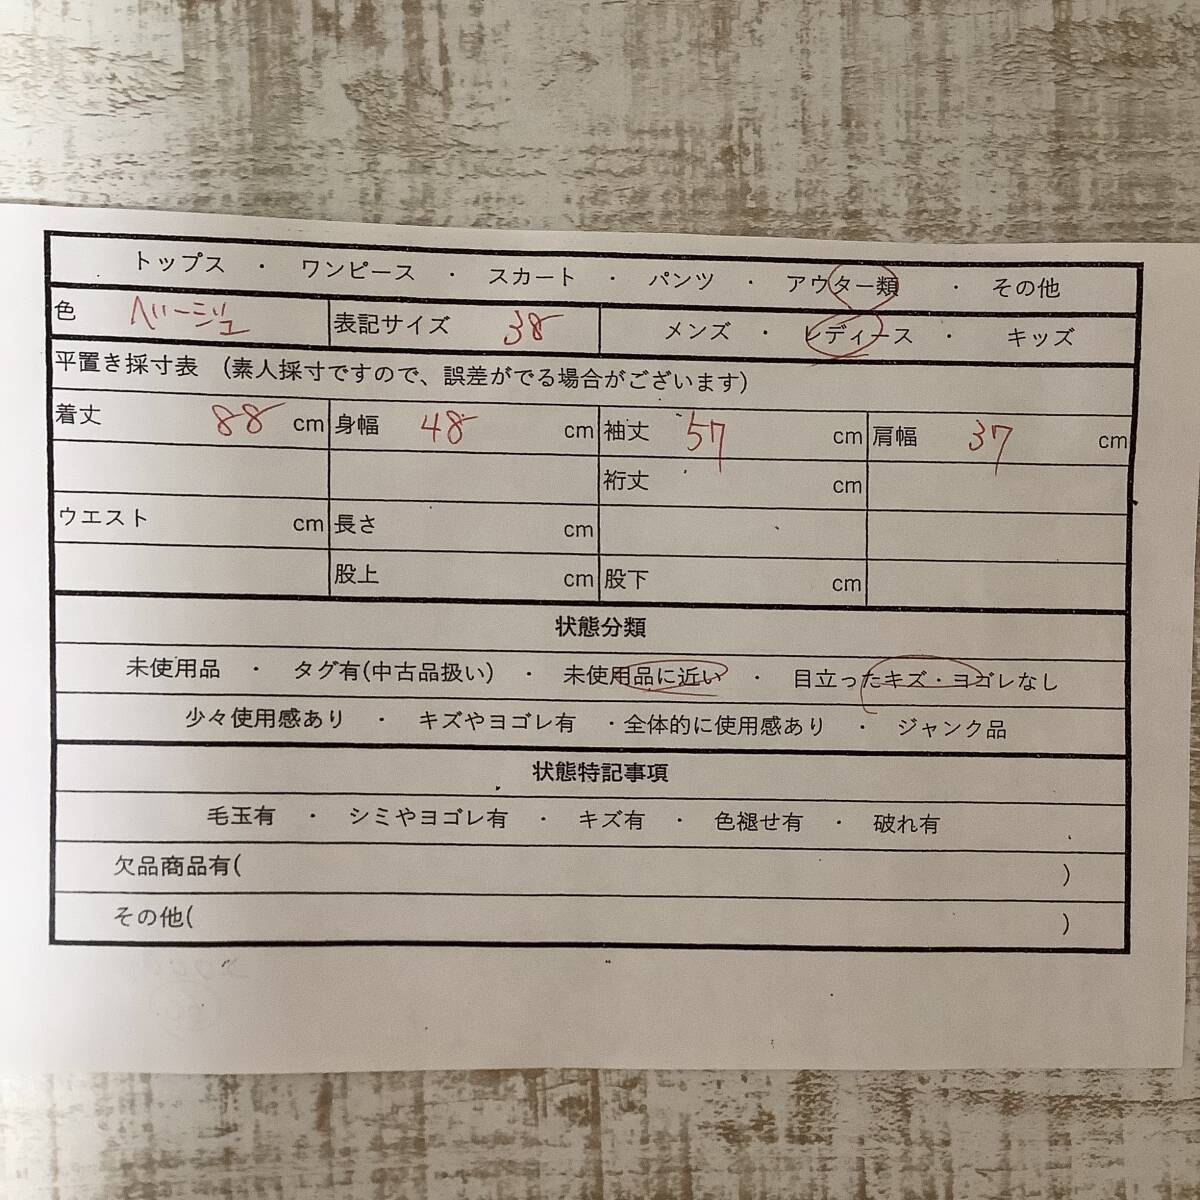 トップス ・ ワンピース ・ スカート ・ パンツ ・ アウター類 ・ その他
色 ベージュ 表記サイズ 38 メンズ ・ レディース ・ キッズ
平置き採寸表 (素人採寸ですので、誤差がでる場合がございます)
着丈 88 cm 身幅 48 cm 袖丈 57 cm 肩幅 37 cm
裄丈 cm
ウエスト cm 長さ cm
股上 cm 股下 cm
状態分類
未使用品 ・ タグ有(中古品扱い) ・ 未使用品に近い ・ 目立ったキズ・ヨゴレなし
少々使用感あり ・ キズやヨゴレ有 ・全体的に使用感あり ・ ジャンク品
状態特記事項
毛玉有 ・ シミやヨゴレ有 ・ キズ有 ・ 色褪せ有 ・ 破れ有
欠品商品有( )
その他( )